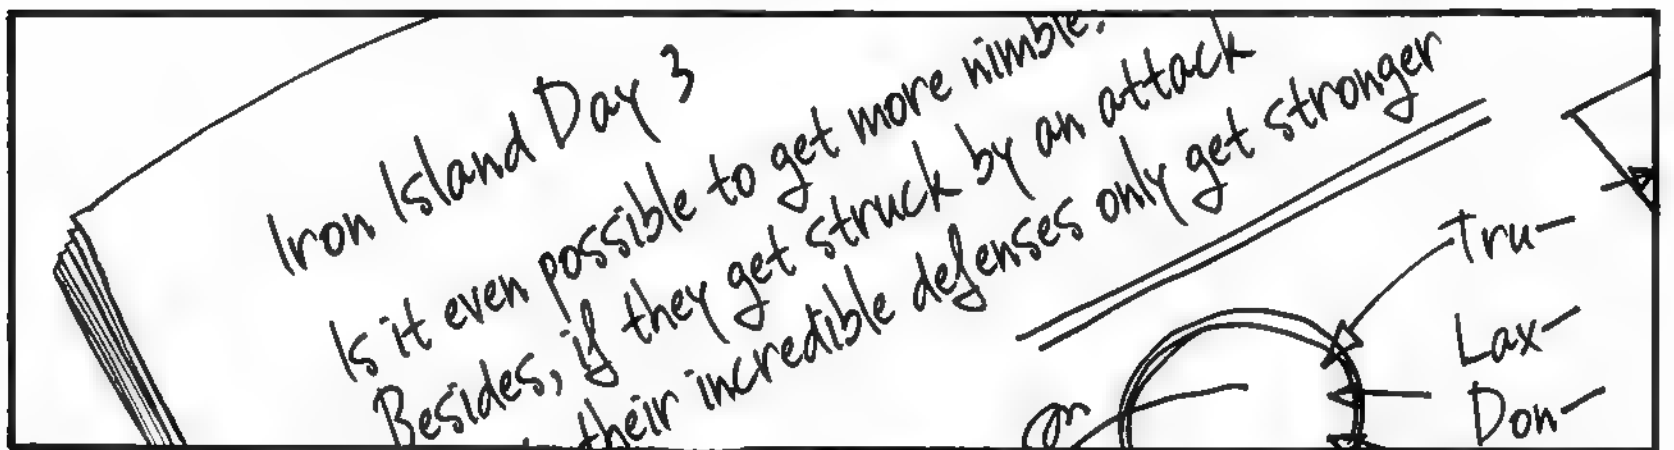 Iron Island Day 3
Is it even possible to get more nimble.
Besides, if they get struck by an attack
their incredible defenses only get stronger
Tru-
Lax-
Don-